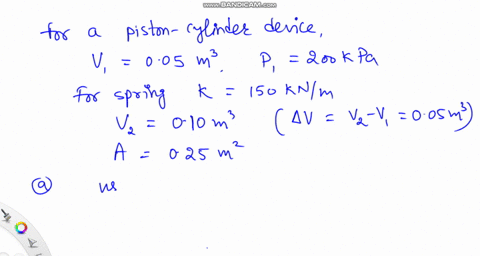 WWW.BANDICAM.COM
for a piston-cylinder device,
V₁ = 0.05 m³. P₁ = 200 kPa
for spring K = 150 KN/m
V₂ = 0.10 m³ (ΔV = V₂-V₁ = 0.05 m³)
A = 0.25 m²
ⓐ us